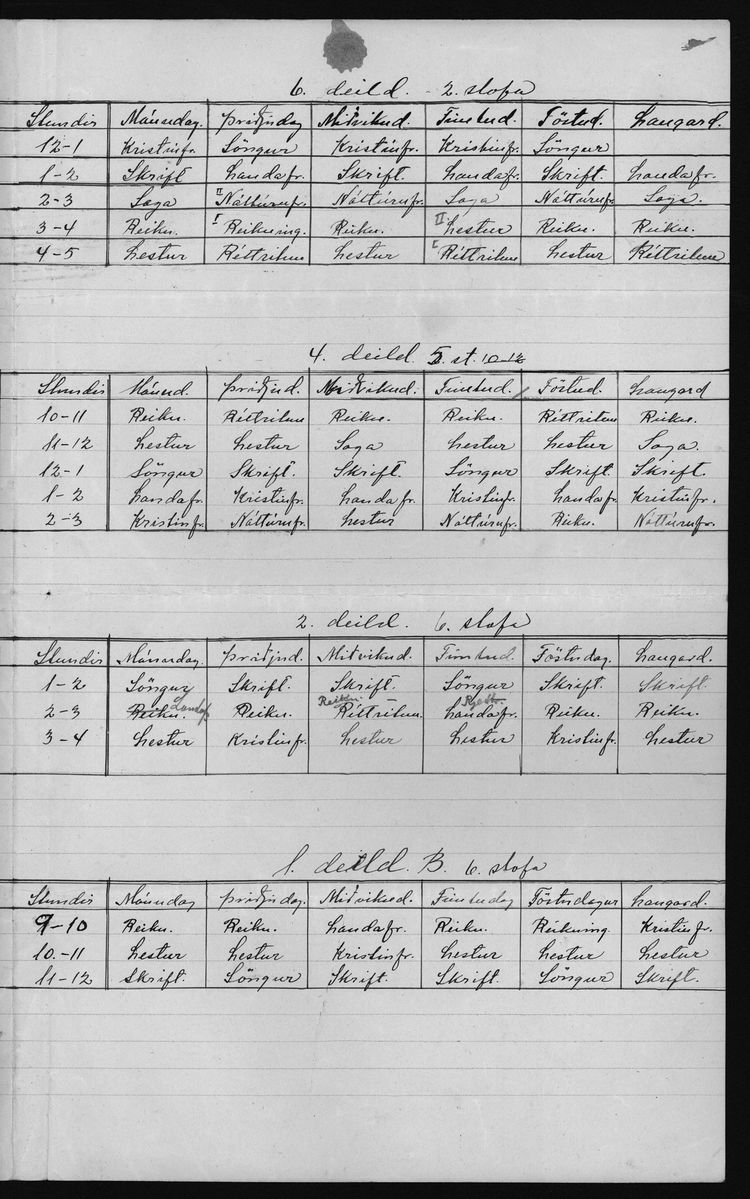 6. deild. - 2. stofa
Stundir Mánudag. Þriðjudag Miðvikud. Fimtud. Föstud. Laugard.
12-1 Kristinfr. Söngur Kristinfr. Kristinfr. Söngur
1-2 Skrift Landafr. Skrift. Landafr. Skrift. Landafr.
2-3 Saga II Náttúrufr. Náttúrufr. Saga Náttúrufr. Saga.
3-4 Reikn. I Reikning. Reikn. II Lestur Reikn. Reikn.
4-5 Lestur Réttritun Lestur I Réttritun Lestur Réttritun
4. deild. 5. st. 10-12
Stundir Mánud. Þriðjud. Miðvikud. Fimtud. Föstud. Laugard
10-11 Reikn. Réttritun Reikn. Reikn. Réttritun Reikn.
11-12 Lestur Lestur Saga Lestur Lestur Saga.
12-1 Söngur Skrift. Skrift Söngur Skrift. Skrift.
1-2 Landafr. Kristinfr. Landafr. Kristinfr. Landafr. Kristinfr.
2-3 Kristinfr. Náttúrufr. Lestur Náttúrufr. Reikn. Náttúrufr.
2. deild. 6. stofa
Stundir Mánudag. Þriðjud. Miðvikud. Fimtud. Föstudag. Laugard.
1-2 Söngur Skrift. Skrift. Söngur Skrift. Skrift.
2-3 Reikn. Landafr. Reikn. Reikn. Réttritun. Landafr. Reikn. Reikn.
3-4 Lestur Kristinfr. Lestur Lestur Kristinfr. Lestur
1. deild. B. 6. stofa
Stundir Mánudag Þriðjudag. Miðvikud. Fimtudag Föstudagur Laugard.
9-10 Reikn. Reikn. Landafr. Reikn. Reikning. Kristinfr.
10.-11 Lestur Lestur Kristinfr. Lestur Lestur Lestur
11-12 Skrift. Söngur Skrift. Skrift. Söngur Skrift.